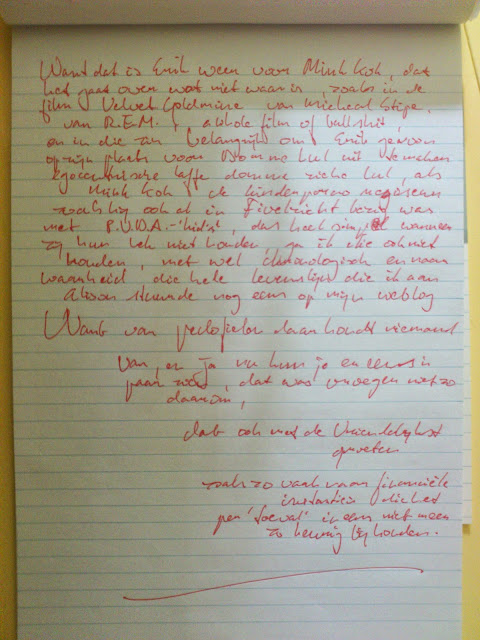 Want dat is Erik weer voor Mink Kok, dat
het gaat over wat niet waar is, zoals in de
film Velvet Goldmine van Micheal Stipe,
van R.E.M., a whole film of bullshit,
en in die zin belangrijk om Erik gewoon
op mijn plaats voor lul uit te maken
egocentrische laffe domme zieke lul, als
Mink Kok de kinderporno
zoals hij ook al in Fivelzicht bezig was
met P.V.D.A.-'kids', dat heel simpel wanneer
zij hun bek niet houden, ga ik die ook niet
houden, met wel chronologisch en naar
waarheid die hele levenslijn die ik aan
stuurde nog eens op mijn weblog
Want van pedofielen daar houdt niemand
van, en ja nu kun je eerst in
paar zoals, dat was vroeger net zo
daarom,
dat ook met de Vriendelijkst
groeten
zoals zo vaak naar financiële
instantie die het
per 'toeval' ineens niet meer
zo bij houden.